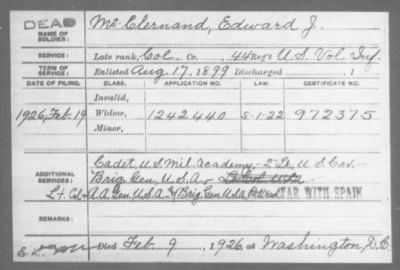 DEAD
NAME OF SOLDIER: McClernand, Edward J.
SERVICE: Late rank, Col. Co. , 44 Reg't U.S. Vol. Inf.
TERM OF SERVICE: Enlisted Aug 17, 1899 Discharged , 1
DATE OF FILING. CLASS. APPLICATION NO. LAW. CERTIFICATE NO.
Invalid,
1926, Feb. 19 Widow, 1242440 5-1-22 972375
Minor,
ADDITIONAL SERVICES: Cadet, U.S. Mil. Academy, - 2" Lt, U.S. Cav. -
Brig. Gen. U.S.A.
Lt. Col. & A.A. Gen. U.S.A. & Brig. Gen. U.S.A. Retired WAR WITH SPAIN
REMARKS:
Died Feb. 9, 1926, at Washington, D.C.